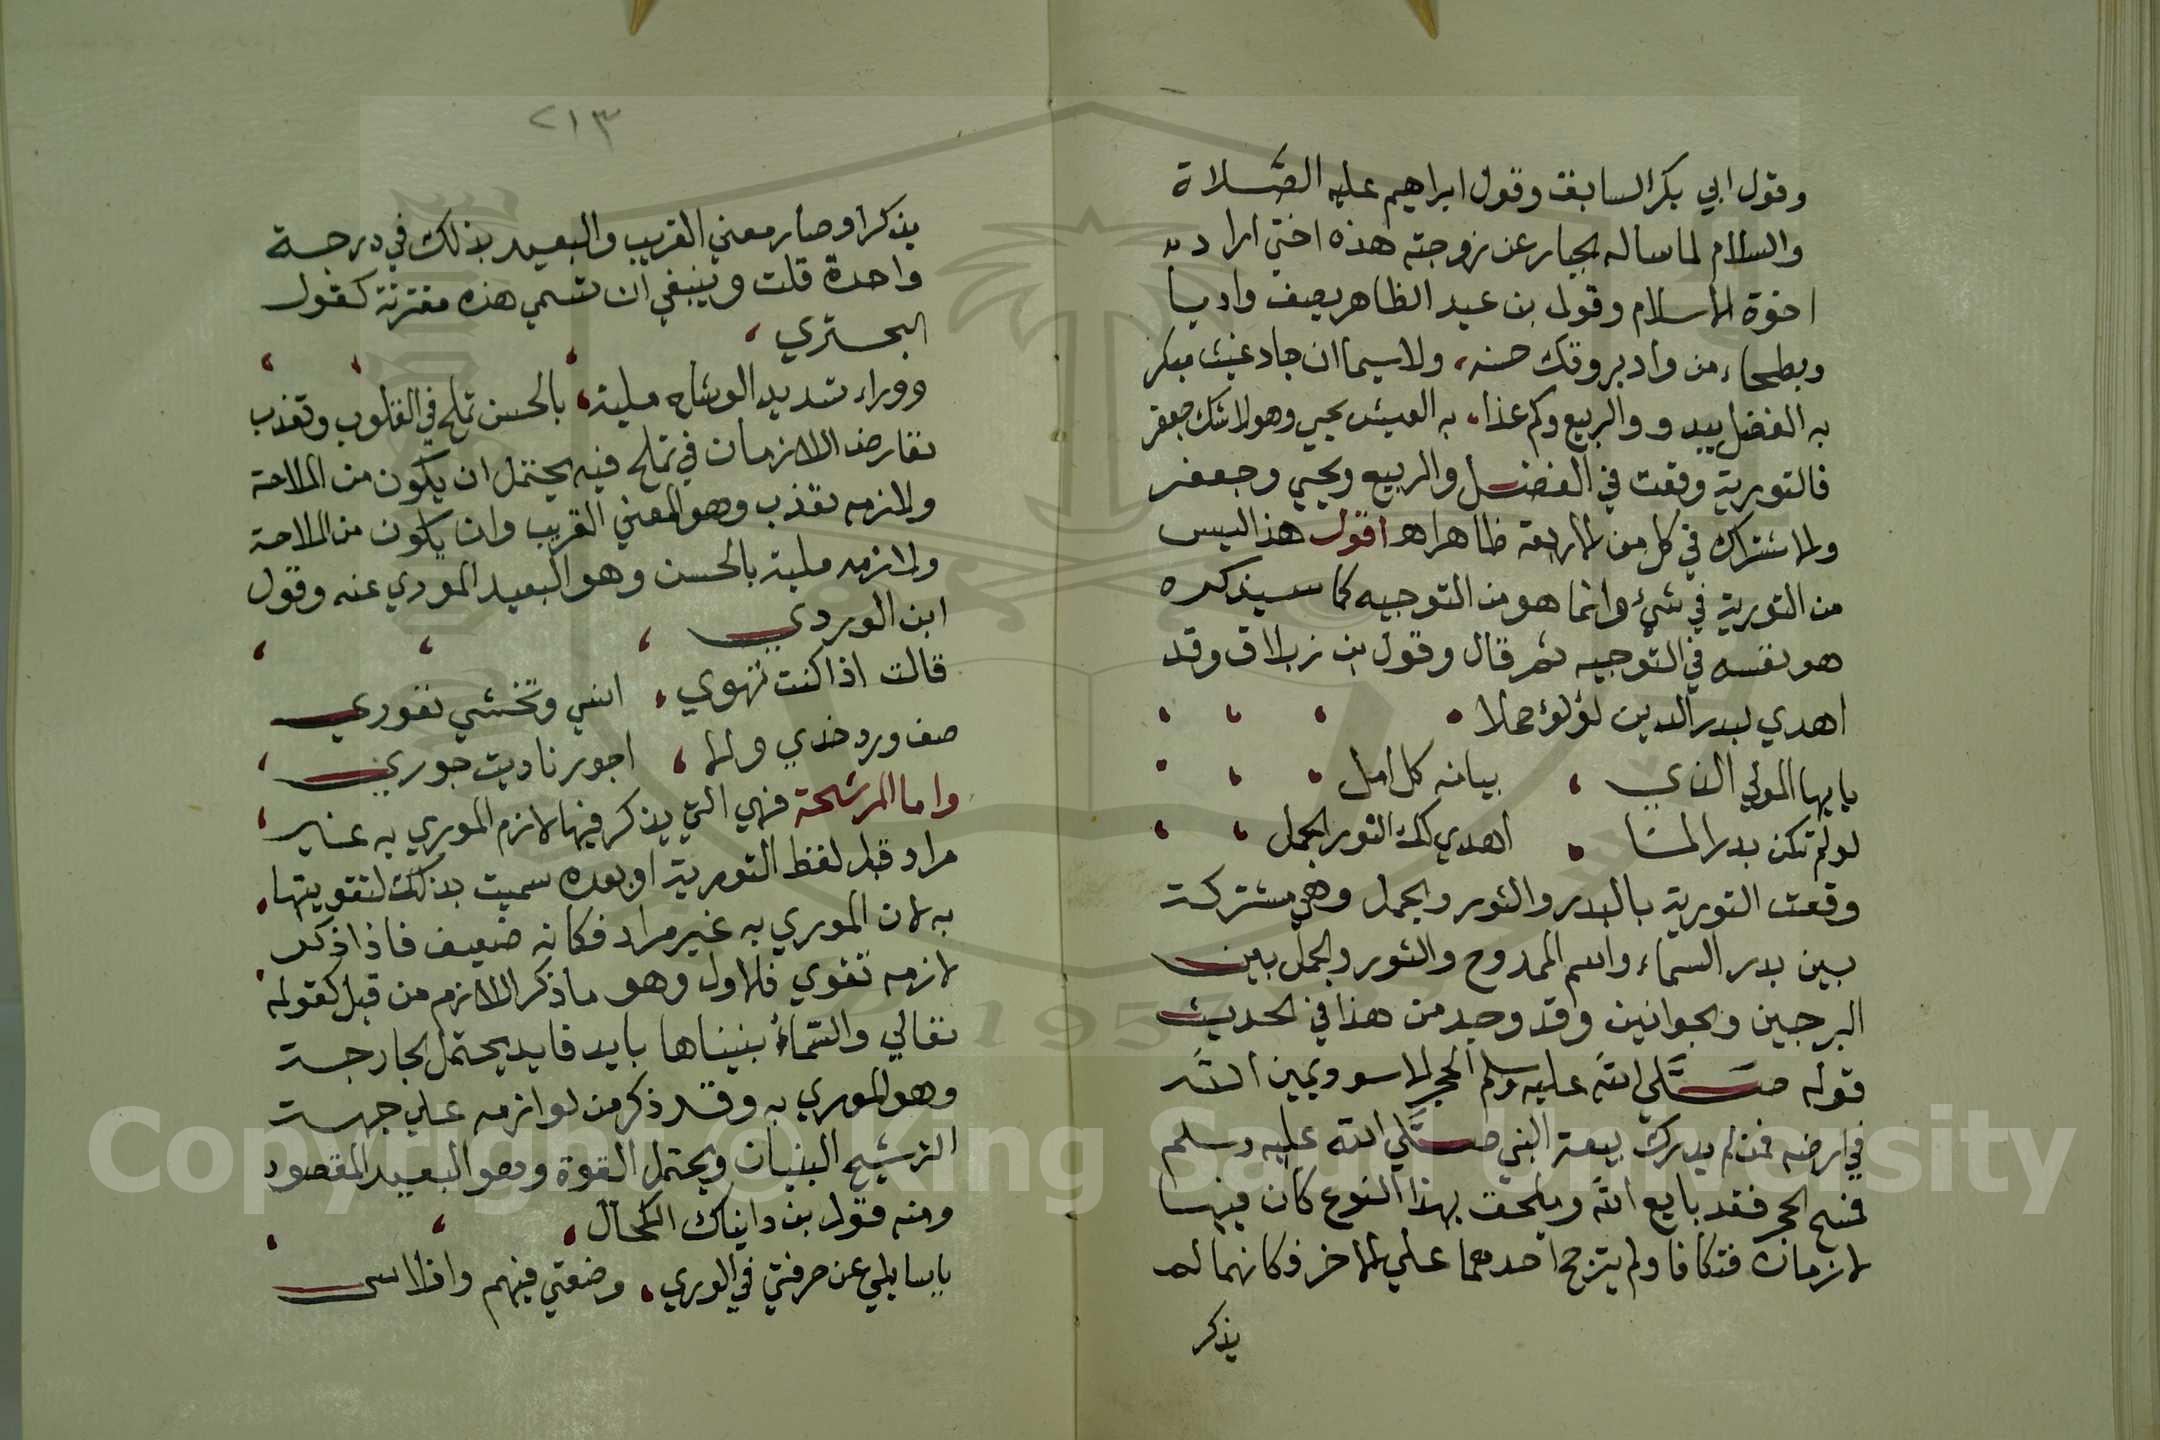 وقول ابي بكر السابق وقول ابراهيم عليه الصلاة
والسلام لما ساله الجبار عن زوجته هذه اختي اراد به
اخوة الاسلام وقول بن عبد الظاهر يصف واديا
وبطحاء من واد يروقك حسنه ، ولا سيما ان جاد غيث مبكر
به الفضل يبدو والربيع وكم غدا ، به العيش يحيي وهو لاشك جعفر
فالتورية وقعت في الفضل والربيع ويحيي وجعفر
والاشتراك في كل من الاربعة ظاهر اهـ اقول هذا ليس
من التورية في شيء وانما هو من التوجيه كما سيذكره
هو نفسه في التوجيه ثم قال وقول بن زبلاق وقد
اهدي لبدر الدين لؤلؤ حملا
يايها المولي الذي ، بيانه كل امل
لو لم تكن بدر السما ، اهدي لك الثور الحمل
وقعت التورية بالبدر والثور والحمل وهي مشتركة
بين بدر السماء واسم الممدوح والثور والحمل بين
البرجين والحوانين وقد وجد من هذا في الحديث
قوله صلي الله عليه وسلم الحجر الاسود يمين الله
في ارضه فمن لم يدرك بيعة النبي صلي الله عليه وسلم
فمسح الحجر فقد بايع الله وملحق بهذا النوع كان فيها
لازمان فتكافا ولم يترجح احدهما علي الاخر فكانهما لم
يذكر
٢١٣
يذكرا وصار معني القريب والبعيد بذلك في درجة
واحدة قلت وينبغي ان تسمي هذه مقترنة كقول
البحتري ،
ووراء تسديد الوشاح ملية ، بالحسن تملح في القلوب وتعذب
تعارض اللازمان في تملح فيه يحتمل ان يكون من الملاحة
ولازمه تعذب وهو المعني القريب وان يكون من الملاحة
ولازمه ملية بالحسن وهو البعيد المودي عنه وقول
ابن الوردي
قالت اذا كنت تهوي ، انسي وتخشي نفوري
صف ورد خدي والا ، اجور ناديت جوري
واما المرشحة فهي التي يذكر فيها لازم الموري به غير
مراد قبل لفظ التورية او بعده سميت بذلك لتقويتها
به لان الموري به غير مراد فكانه ضعيف فاذا ذكر
لازمه تقوي فالاول وهو ما ذكر اللازم من قبل كقوله
تعالي والسماء بنيناها بايد فايد يحتمل الجارحة
وهو الموري به وقد ذكر من لوازمه علي جهة
الترشيح البنيان ويحتمل القوة وهو البعيد المقصود
ومنه قول بن دانيال الكحال ،
ياسايلي عن حرفتي في الوري ، وضعتي فيهم وافلاسي
Copyright © King Saud University